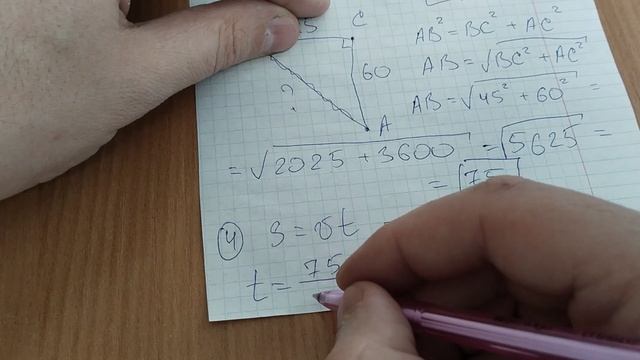 C
AB² = BC² + AC²
60
AB = √BC² + AC²
?
AB = √45² + 60² =
A
= √2025 + 3600 = √5625 =
= 75
④ S = vt
t = 75